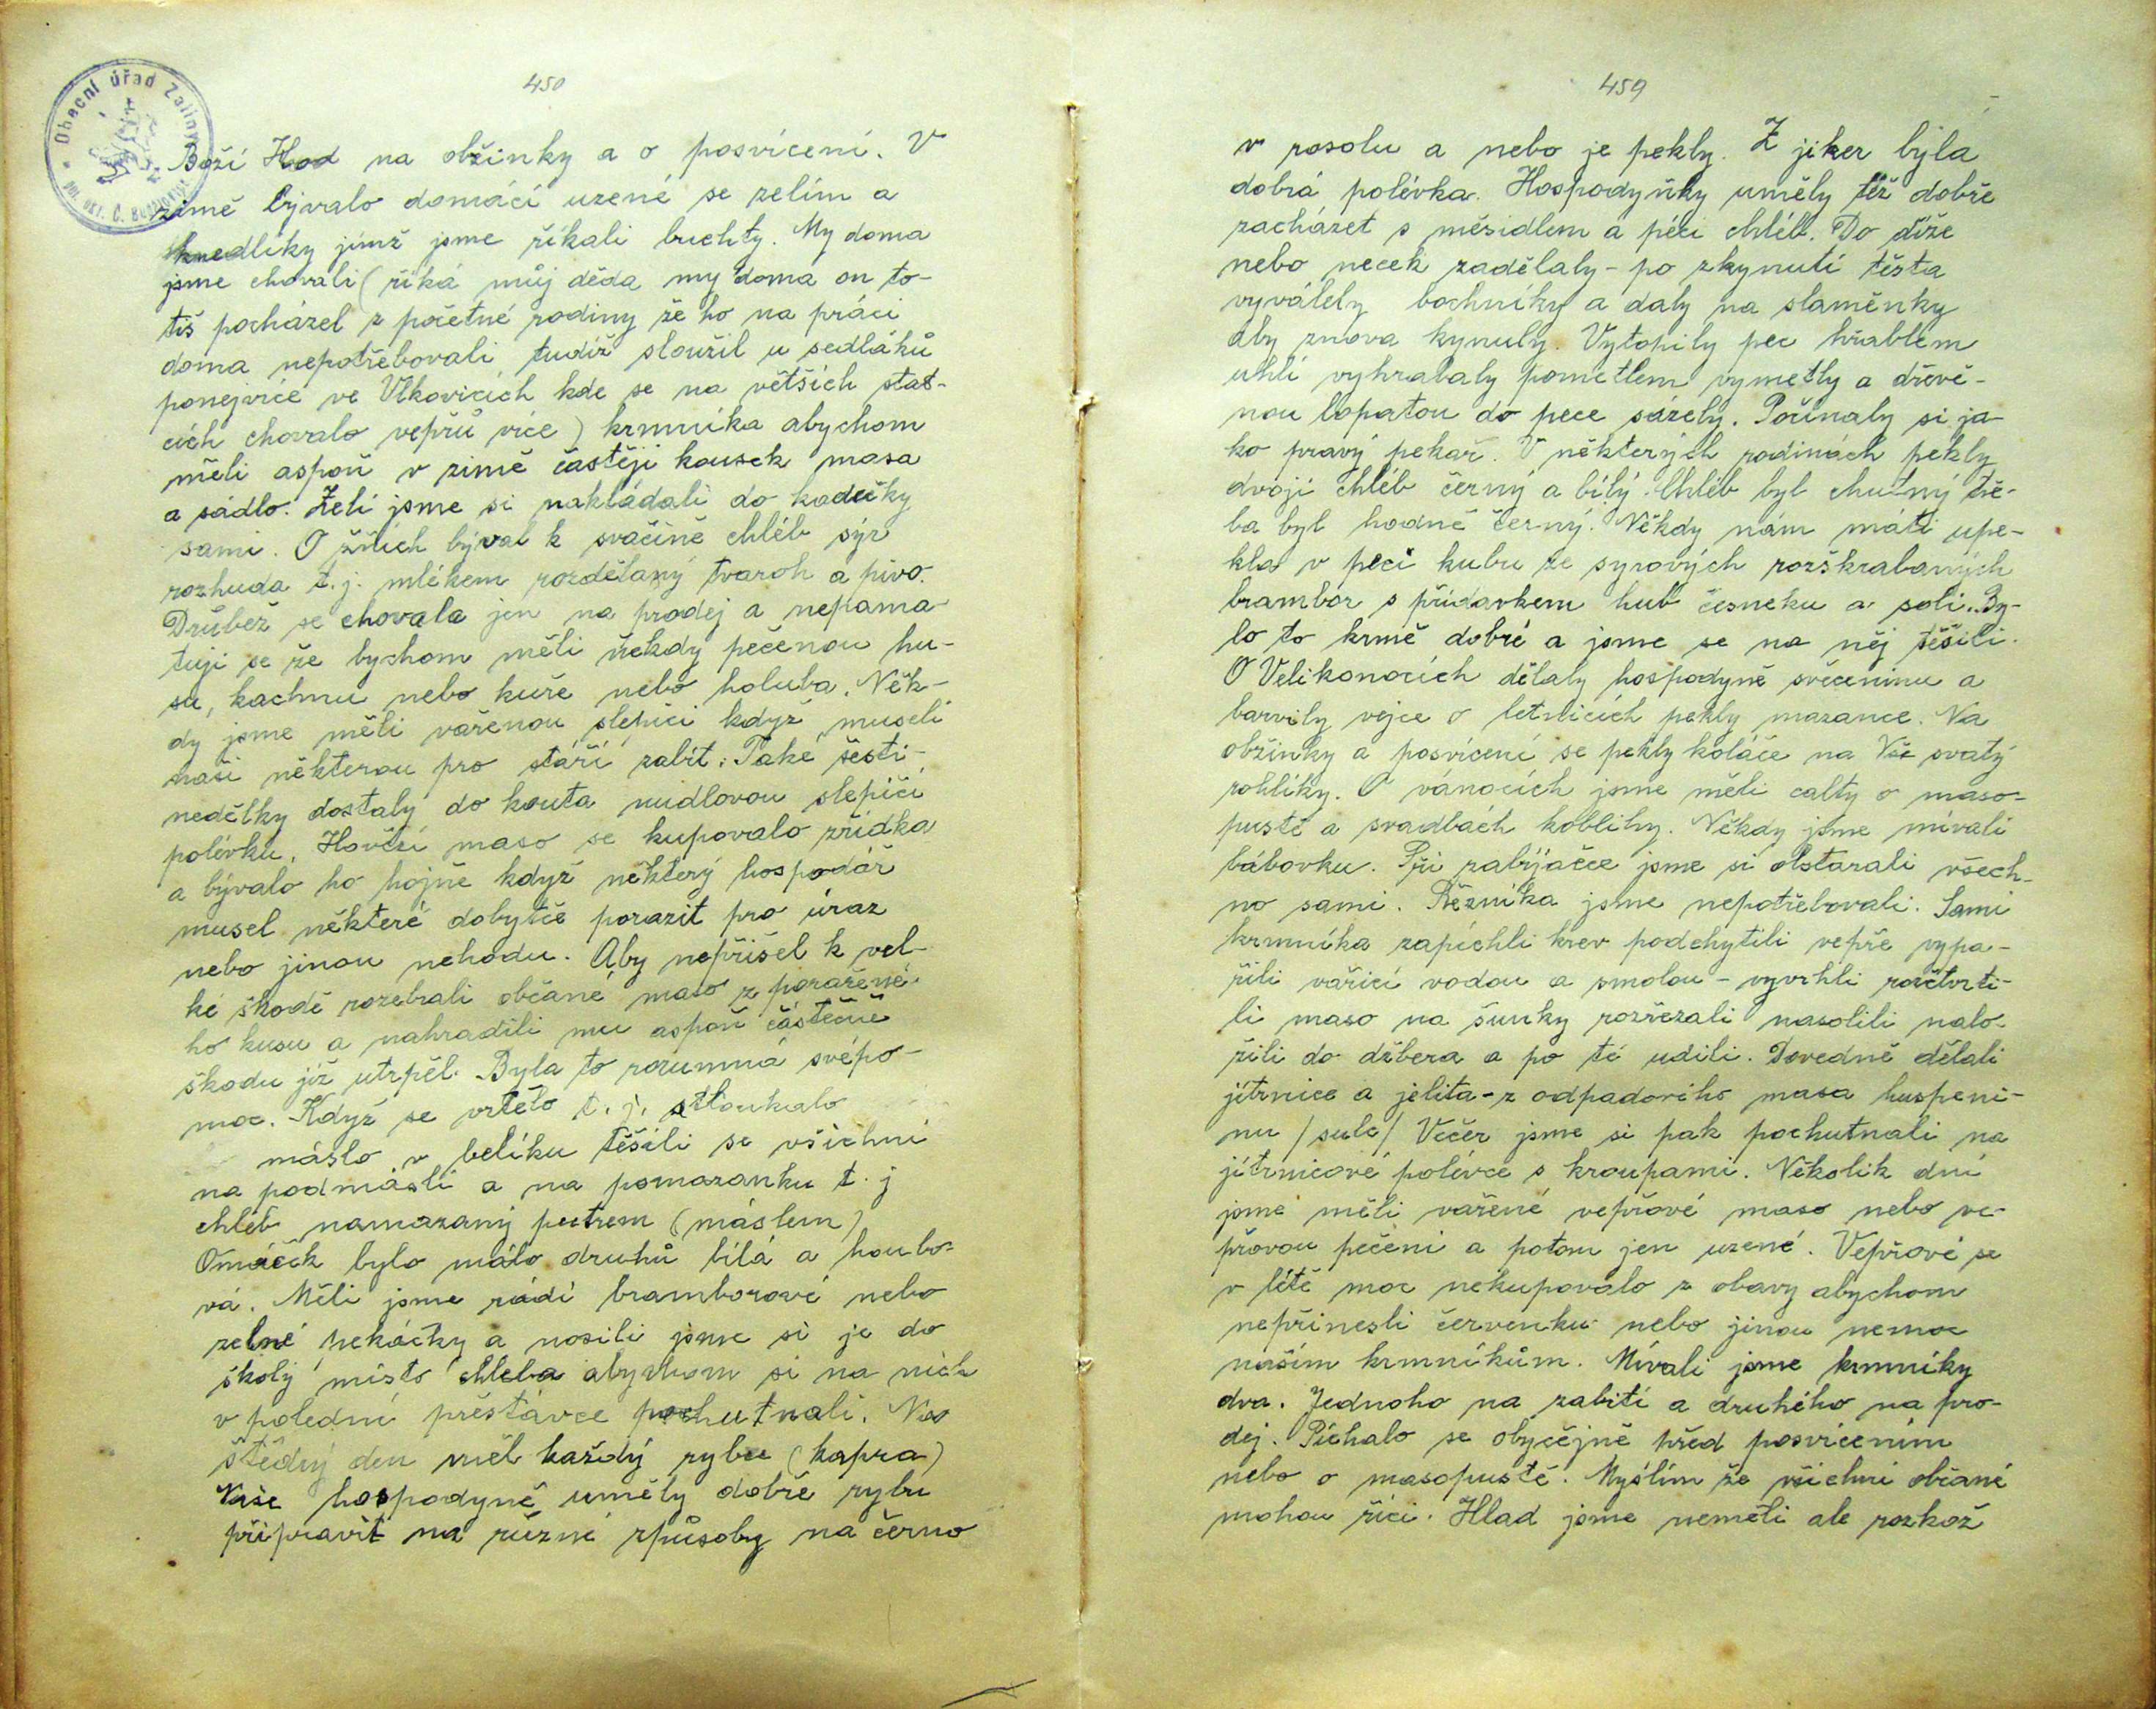 450
Obecní úřad Zaliny
Boží Hod na obžinky a o posvícení. V
zimě bývalo domácí uzené se zelím a
knedlíky jímž jsme říkali buchty. My doma
jsme chovali (říká můj děda my doma on to-
tiš pocházel z početné rodiny že ho na práci
doma nepotřebovali tudíž sloužil u sedláků
ponejvíce ve Vlkovicích kde se na větších stat-
cích chovalo vepřů více) krmníka abychom
měli aspoň v zimě častěji kousek masa
a sádlo. Zelí jsme si nakládali do kadečky
sami. O žních býval k svačině chléb sýr
rozhuda t.j. mlékem rozdělaný tvaroh a pivo.
Drůbež se chovala jen na prodej a nepama-
tuji se že bychom měli někdy pečenou hu-
su, kachnu nebo kuře nebo holuba. Něk-
dy jsme měli vařenou slepici když museli
naši některou pro stáří zabít. Také šesti-
nedělky dostaly do kouta nudlovou slepičí
polévku. Hovězí maso se kupovalo zřídka
a bývalo ho hojně když některý hospodář
musel některé dobytče porazit pro úraz
nebo jinou nehodu. Aby nepřišel k vel-
ké škodě rozebrali občané maso z poražené-
ho kusu a nahradili mu aspoň částečně
škodu již utrpěl. Byla to rozumná svépo-
moc. Když se vrtělo t.j. stloukalo
máslo v belíku těšili se všichni
na podmáslí a na pomazanku t.j
chléb namazaný putrem (máslem)
Omáček bylo málo druhů bílá a houbo-
vá. Měli jsme rádi bramborové nebo
zelné pekáčky a nosili jsme si je do
školy místo chleba abychom si na nich
v polední přestávce pochutnali. Na
štědrý den měl každý rybu (kapra)
Naše hospodyně uměly dobře rybu
připravit na různé způsoby na černo
459
v rosolu a nebo je pekly. Z jiker byla
dobrá polévka. Hospodyňky uměly též dobře
zacházet s měsidlem a péci chléb. Do díže
nebo necek zadělaly - po zkynutí těsta
vyválely bochníky a daly na slaměnky
aby znova kynuly. Vytopily pec hřablem
uhlí vyhrabaly pometlem vymetly a dřevě-
nou lopatou do pece sázely. Počínaly si ja-
ko pravý pekař. V některých rodinách pekly
dvojí chléb černý a bílý. Chléb byl chutný tře-
ba byl hodně černý. Někdy nám máti upe-
kla v peci kubu ze syrových rozškrabaných
brambor s přídavkem hub česneku a soli. By-
lo to krmě dobré a jsme se na něj těšili.
O Velikonocích dělaly hospodyně svěceninu a
barvily vejce o letnicích pekly mazance. Na
obžinky a posvícení se pekly koláče na Vše svatý
rohlíky. O vánocích jsme měli calty o maso-
pustě a svadbách koblihy. Někdy jsme mívali
bábovku. Při zabíjačce jsme si obstarali všech-
no sami. Řezníka jsme nepotřebovali. Sami
krmníka zapíchli krev podchytili vepře vypa-
řili vařící vodou a smolou - vyvrhli rozčtvrti-
li maso na šunky rozřezali nasolili nalo-
žili do džbera a po té udili. Dovedně dělali
jitrnice a jelita - z odpadového masa huspeni-
nu /sulc/ Večer jsme si pak pochutnali na
jitrnicové polévce s kroupami. Několik dní
jsme měli vařené vepřové maso nebo ve-
přovou pečeni a potom jen uzené. Vepřové se
v létě moc nekupovalo z obavy abychom
nepřinesli červenku nebo jinou nemoc
našim krmníkům. Mívali jsme krmníky
dva. Jednoho na zabití a druhého na pro-
dej. Píchalo se obyčejně před posvícením
nebo o masopustě. Myslím že všichni občané
mohou říci. Hlad jsme neměli ale rozkoš